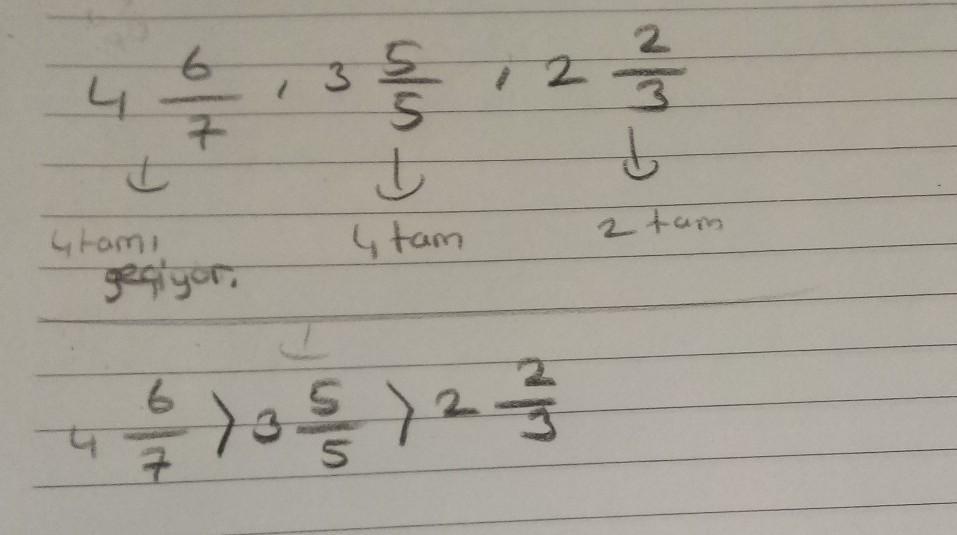 4 6/7 , 3 5/5 , 2 2/3
↓ ↓ ↓
4 tamı 4 tam 2 tam
geçiyor.
↓
4 6/7 > 3 5/5 > 2 2/3